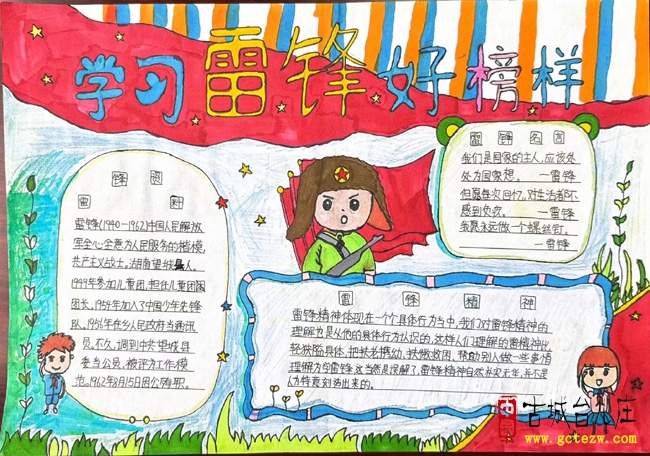 学习雷锋好榜样
雷锋资
料
雷锋(1940-1962)中国人民解放
军全心全意为人民服务的楷模,
共产主义战士。湖南望城人。
1949年参加儿童团,担任儿童团
团长。1954年加入了中国少年先锋
队。1956年在乡人民政府当通讯
员,不久,调到中共望城县
委当公务员,被评为工作模
范。1962年8月15日因公殉职。
雷锋名言
我们是国家的主人,应该处
处为国家想。 一雷锋
但愿每次回忆,对生活都不
感到负疚。 一雷锋
我愿永远做一个螺丝钉。
一雷锋
雷锋精神
雷锋精神体现在一个个具体行为当中,我们对雷锋精神的
理解也是从他的具体行为认识的,这样人们理解的雷锋精神比
较狭隘具体,把扶老携幼、扶微救困,帮助别人做一些事情
理解为雷锋这当然是误解了,雷锋精神自然朴实无华,并不是
人为特意刻画出来的。
古城台儿庄
www.gctezw.com